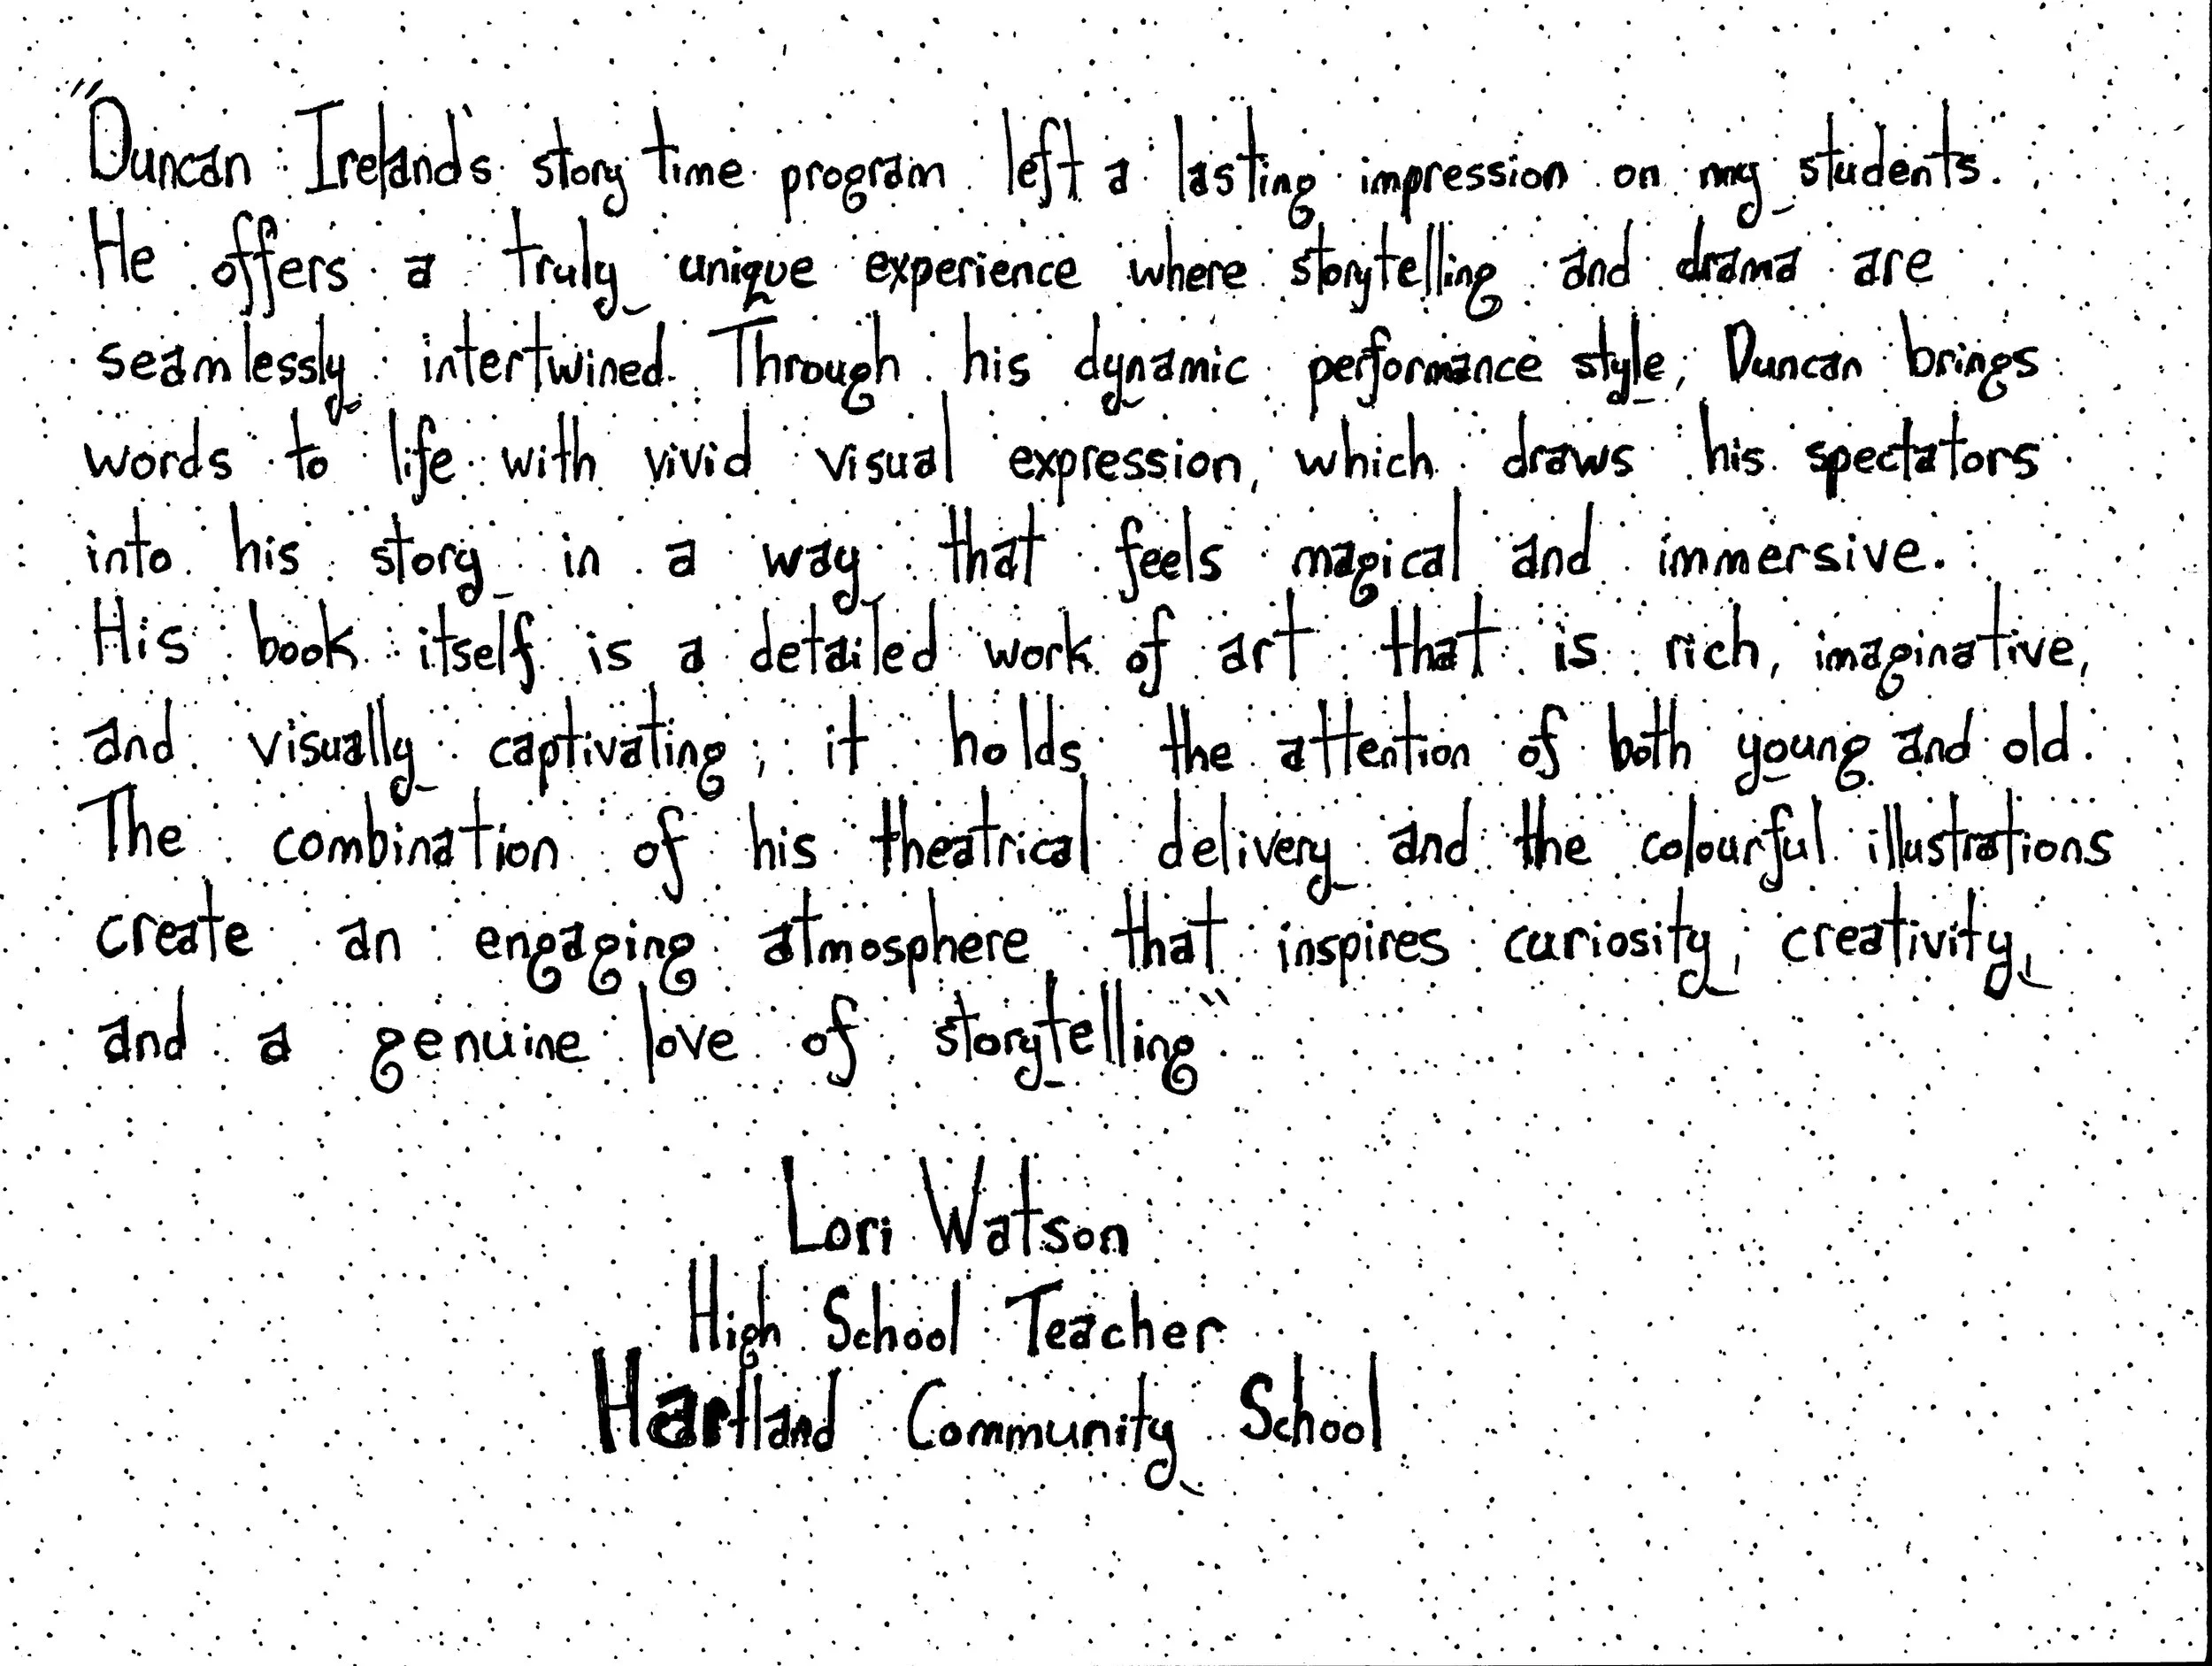 "Duncan Ireland's story time program left a lasting impression on my students.
He offers a truly unique experience where storytelling and drama are
seamlessly intertwined. Through his dynamic performance style, Duncan brings
words to life with vivid visual expression, which draws his spectators
into his story in a way that feels magical and immersive.
His book itself is a detailed work of art that is rich, imaginative,
and visually captivating; it holds the attention of both young and old.
The combination of his theatrical delivery and the colourful illustrations
create an engaging atmosphere that inspires curiosity, creativity,
and a genuine love of storytelling"
Lori Watson
High School Teacher
Hartland Community School